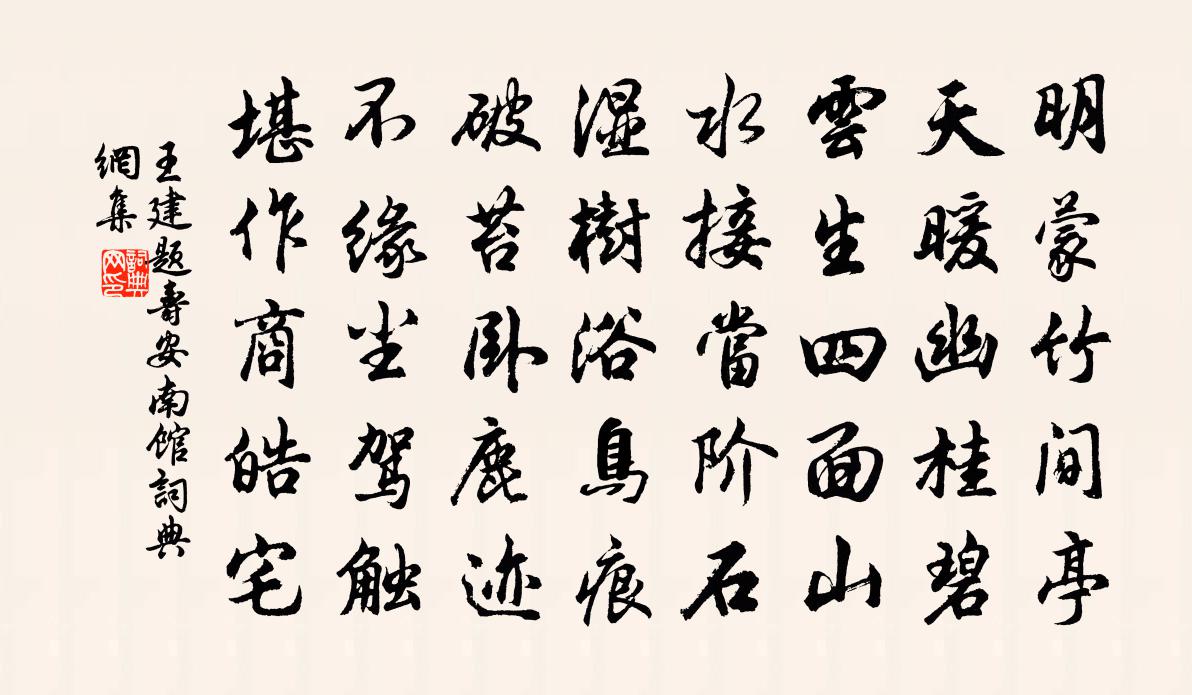 明蒙竹间亭
天暖幽桂碧
雲生四面山
水接當阶石
湿樹浴鳥痕
破苔卧鹿迹
不缘尘驾触
堪作商皓宅
王建题壽安南馆詞典
網集
詞典
网印